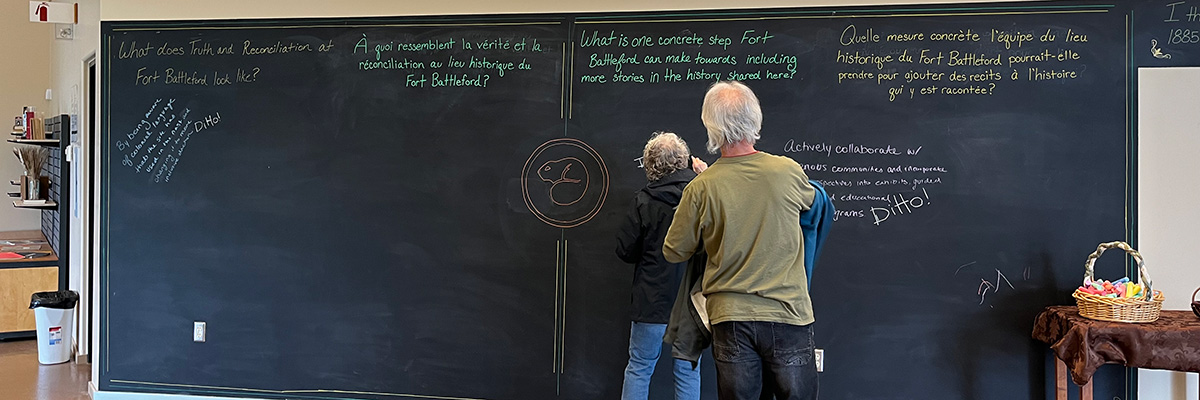 What does Truth and Reconciliation at
Fort Battleford look like?
À quoi ressemblent la vérité et la
réconciliation au lieu historique du
Fort Battleford?
What is one concrete step Fort
Battleford can make towards including
more stories in the history shared here?
Quelle mesure concrète l'équipe du lieu
historique du Fort Battleford pourrait-elle
prendre pour ajouter des recits à l'histoire
qui y est racontée?
By being aware
of colonial language
that the site has
used in the past and
DiTTo!
Actively collaborate w/
communities and incorporate
into exhibits, guided
educational
DiTTo!
1885